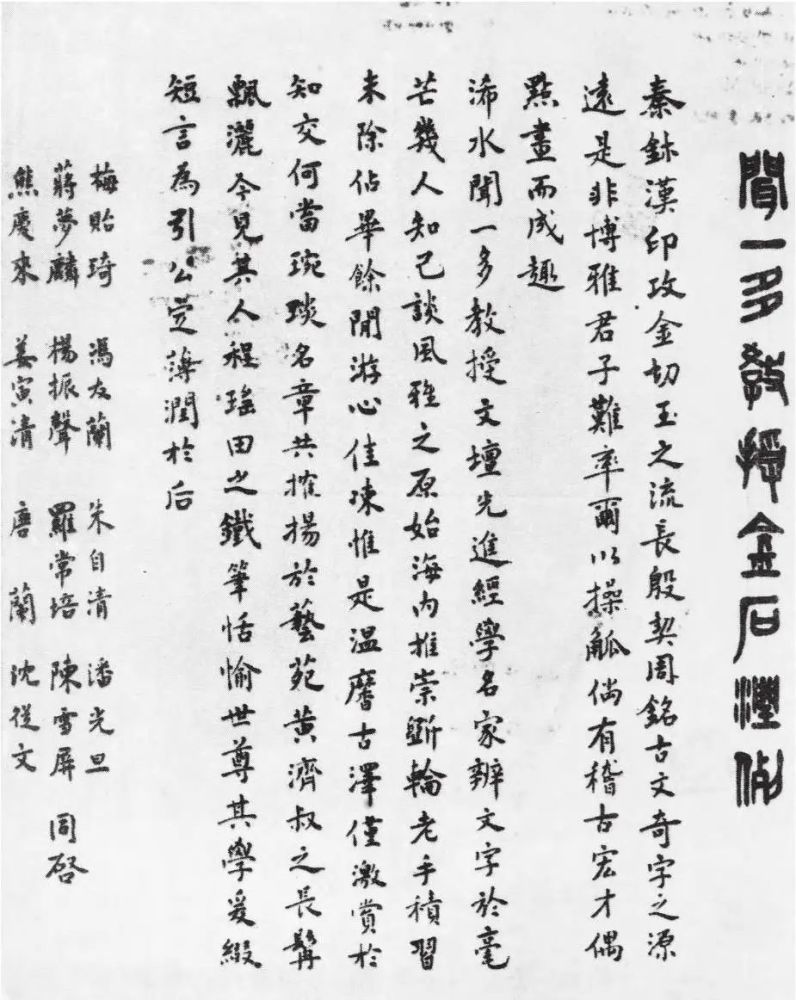 聞一多教授金石潤例
秦鉥漢印攻金切玉之流長殷契周銘古文奇字之源
遠是非博雅君子難率爾以操觚倘有稽古宏才偶
點畫而成趣
浠水聞一多教授文壇先進經學名家辨文字於毫
芒幾人知己談風雅之原始海內推崇斲輪老手積習
未除佔畢餘閒游心佳凍惟是溫麐古澤僅激賞於
知交何當琬琰名章共榷揚於藝苑黄濟叔之長髯
飄灑今見其人程瑤田之鐵筆恬愉世尊其學爰綴
短言為引公定薄潤於后
梅貽琦 馮友蘭 朱自清 潘光旦
蔣夢麟 楊振聲 羅常培 陳雪屏 同啓
熊慶來 姜寅清 唐蘭 沈從文